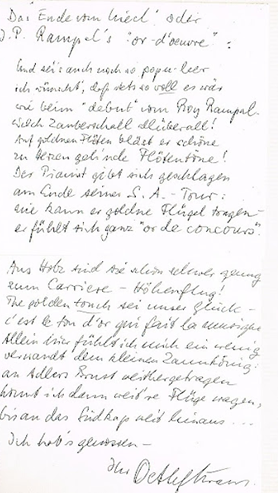 "Das Ende vom Lied" oder
J. P. Rampal's "or-d'oeuvre":
Und sei's auch noch so
ich wünscht', daß stets so voll es wär
wie beim "début" vom Prog Rampal.
Welch Zauberschall überall!
Auf goldnen Flöten bläst er schöne
zu Herzen gehnde Flötentöne!
Der Pianist gibt sich geschlagen
am Ende seiner S. A. - Tour:
nie kann er goldne Flügel tragen –
er fühlt sich ganz "or de concours".
Aus Holz sind sie schon schwer genug
zum Carriere - Höhenflug!
The golden touch sei unser Glück –
c'est le ton d'or qui fait la musique
Allein hier fühlt' ich mich ein wenig
verwandt dem kleinen Zaunkönig:
an Adlers Brust weithergetragen
könnt ich dann weit're Flüge wagen,
bis an das Südkap weit hinaus ...
Ich hab's genossen –
Ihr Detlef Kraus